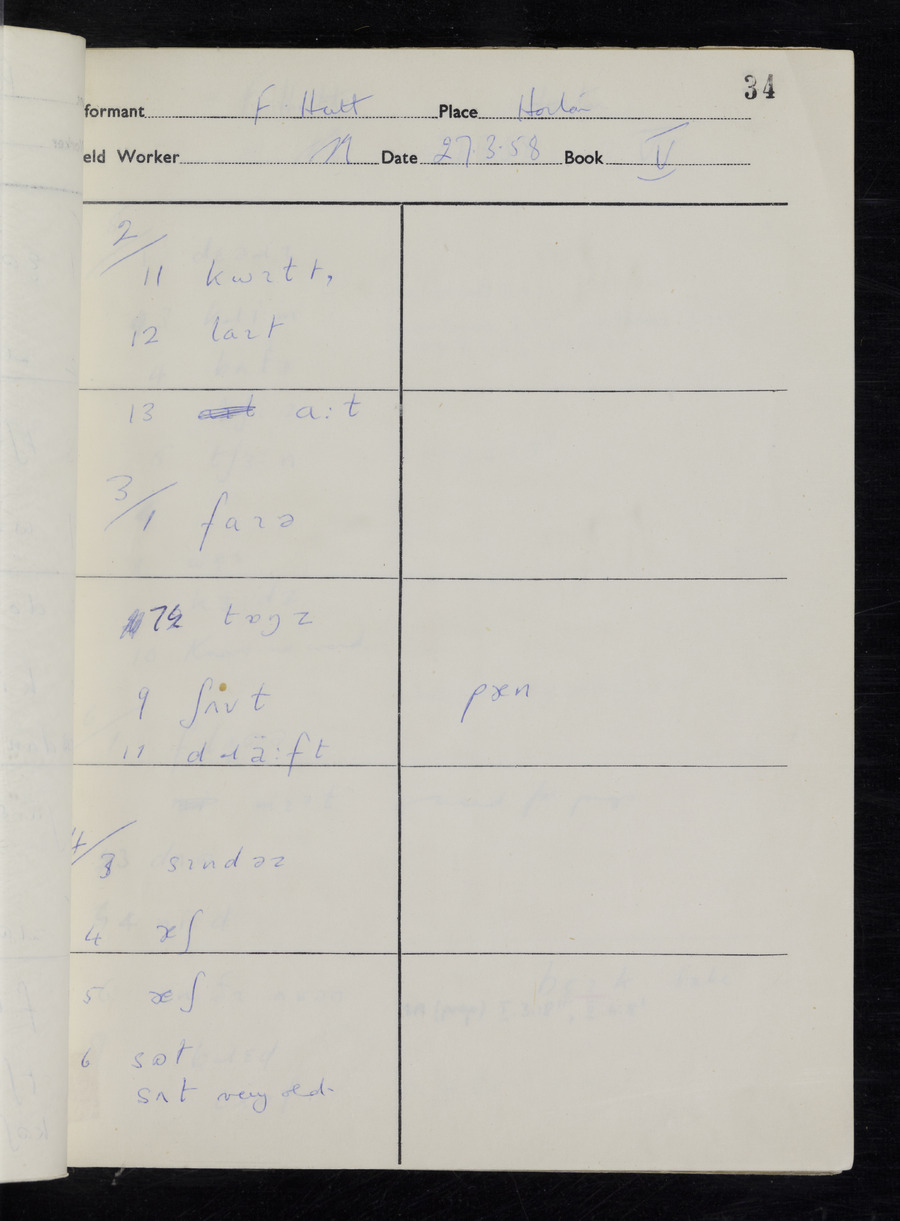 34
formant F. Hutt Place
eld Worker N Date 27.3.58 Book V
2/
11
12 laɪt
13 a:t
3/1 faɪə
7 tɒŋz
9 ʃʌvt pæn
11 dɹä:ft
4/3 sɪndəz
4 æʃ
5 æʃ
6 sɷt
sʌt very old